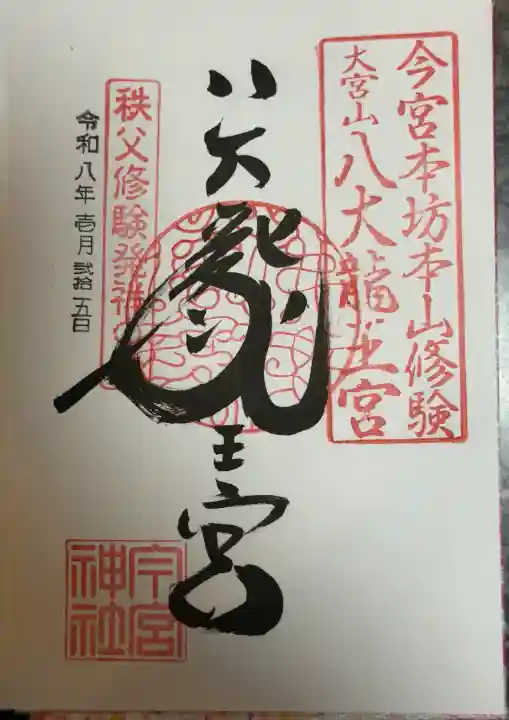 今宮本坊本山修験
大宮山八大龍王宮
八大龍王宮
秩父修験発祥
令和八年壱月弐拾五日
今宮
神社